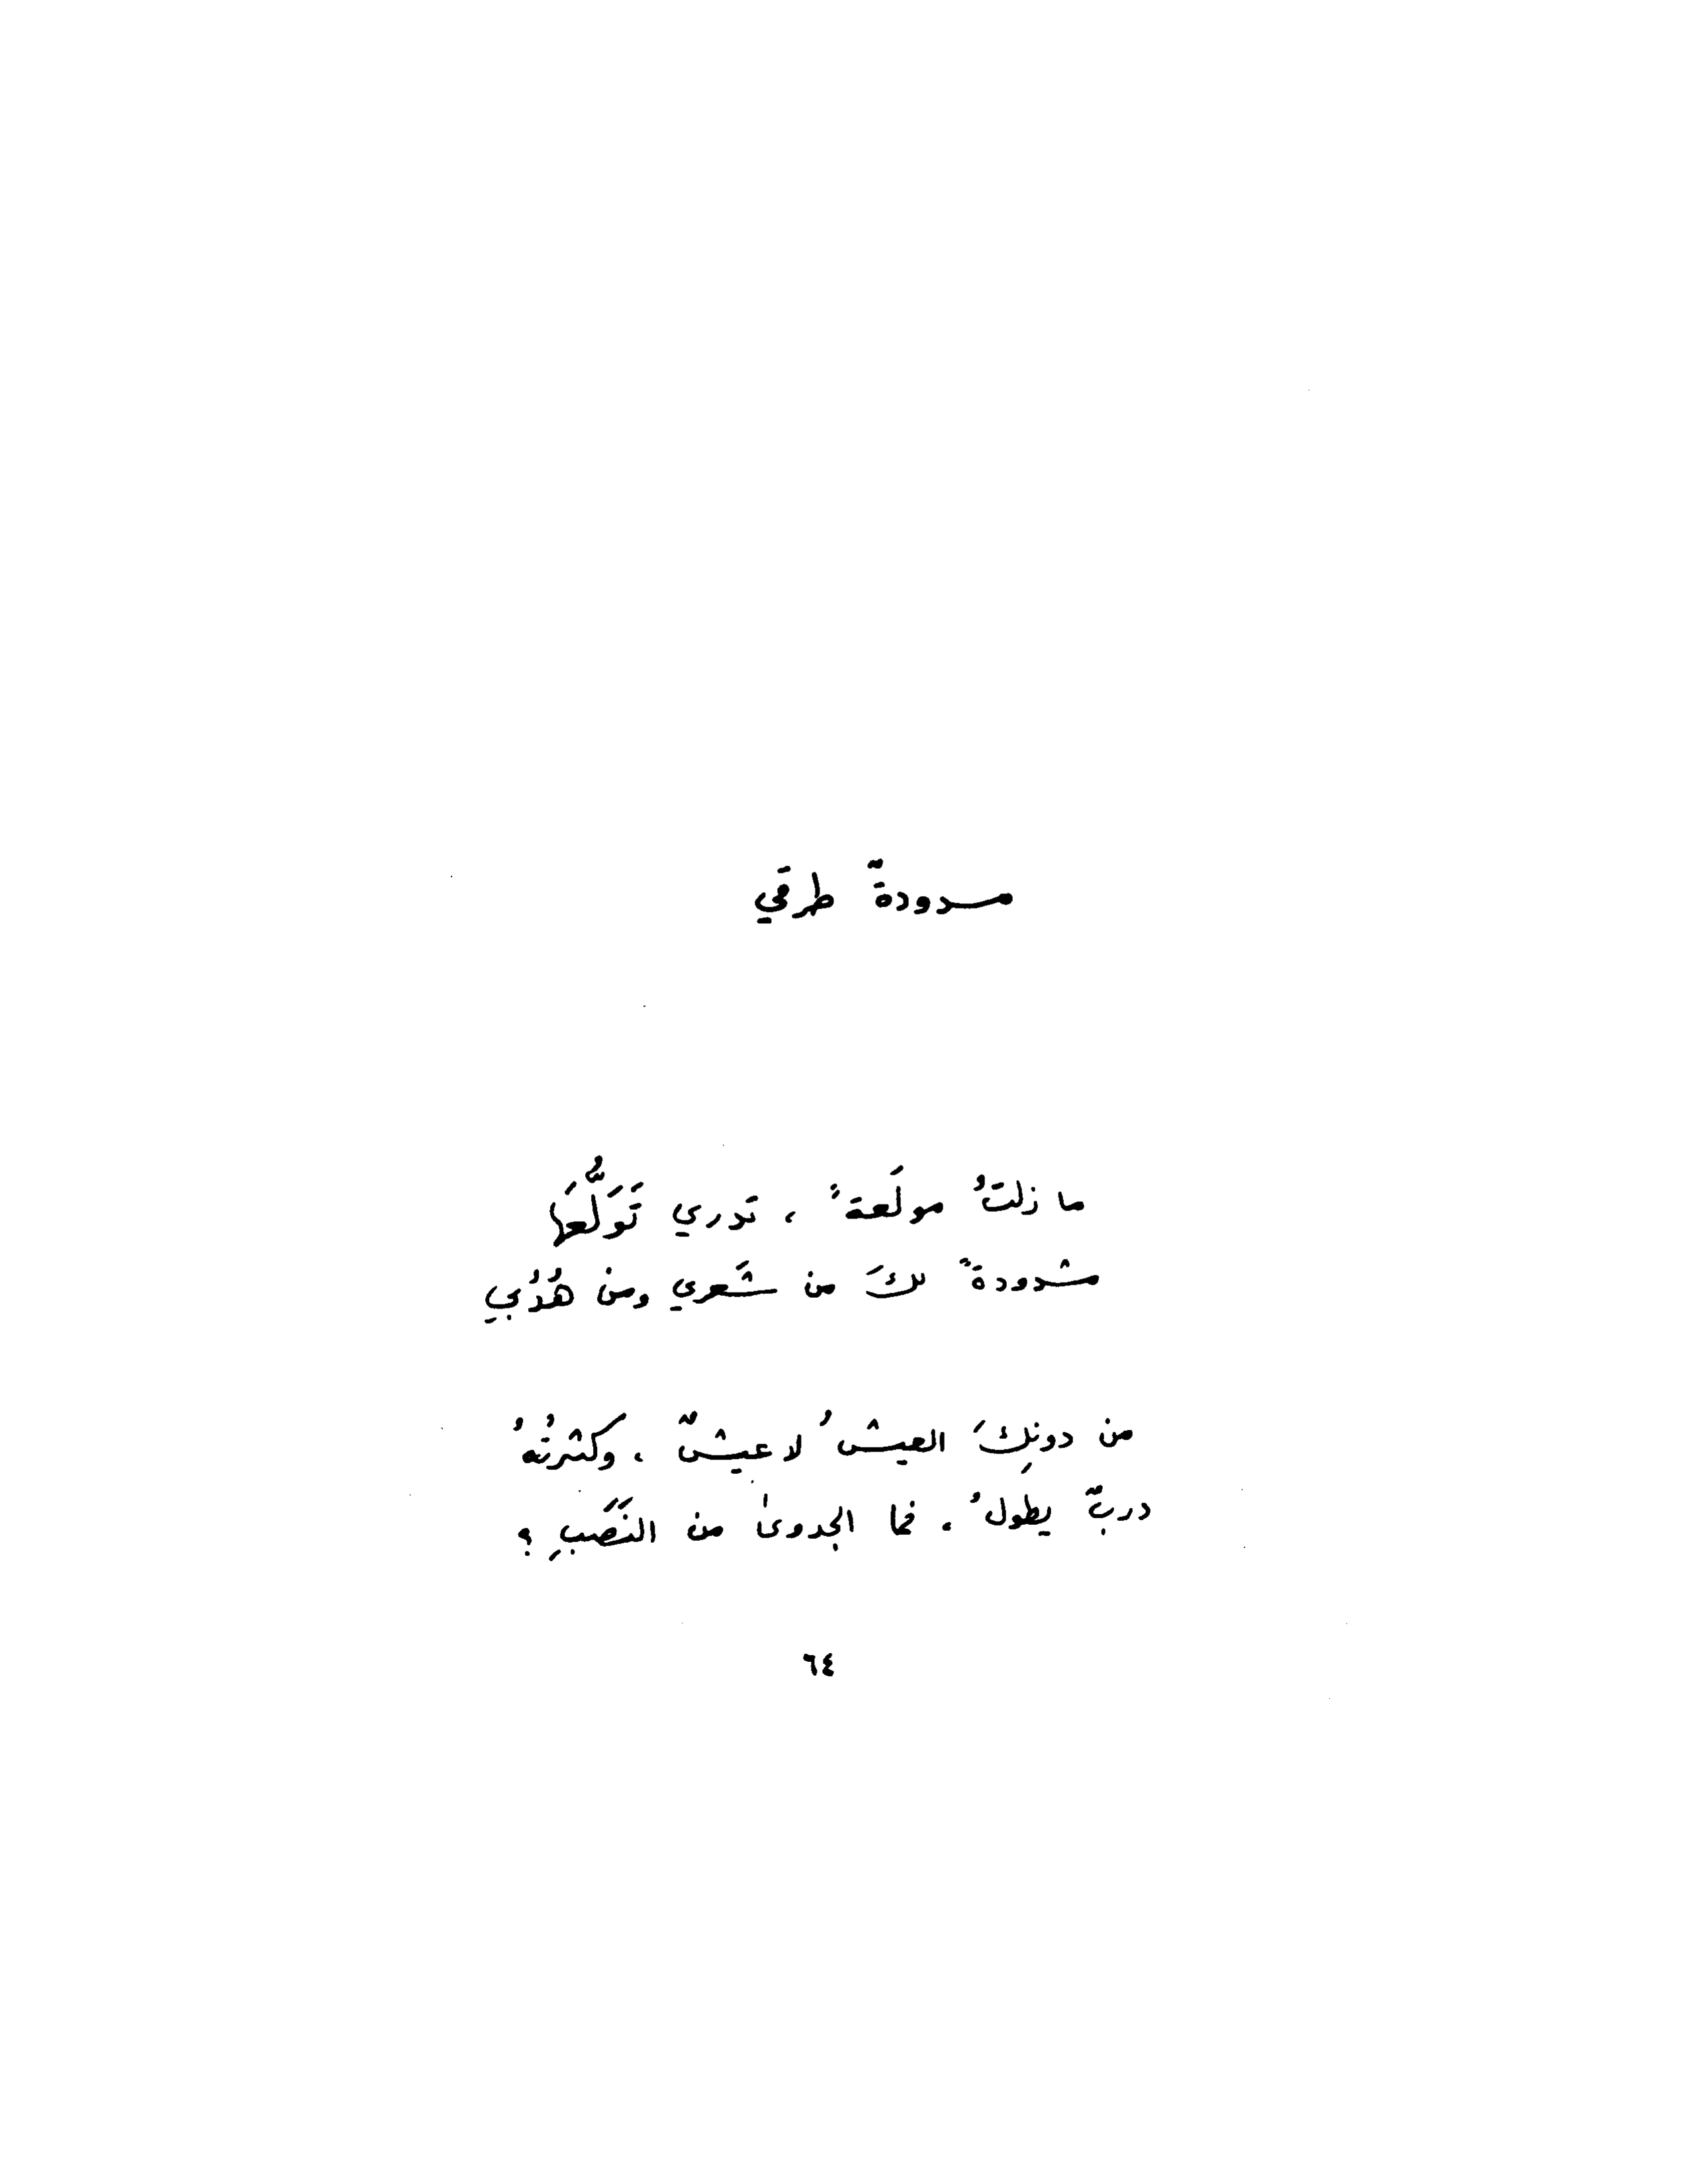 مسدودةٌ طرقي
ما زلتُ مولَعةً ، تدري تَوَلُّعَها
مشدودةً لكَ من شَعري ومن هُدُبي
من دونِكَ العيشُ لا عيشٌ ، وكثرتُهُ
دربٌ يطولُ ، فما الجدوىٰ من النَصَبِ ؟
٦٤